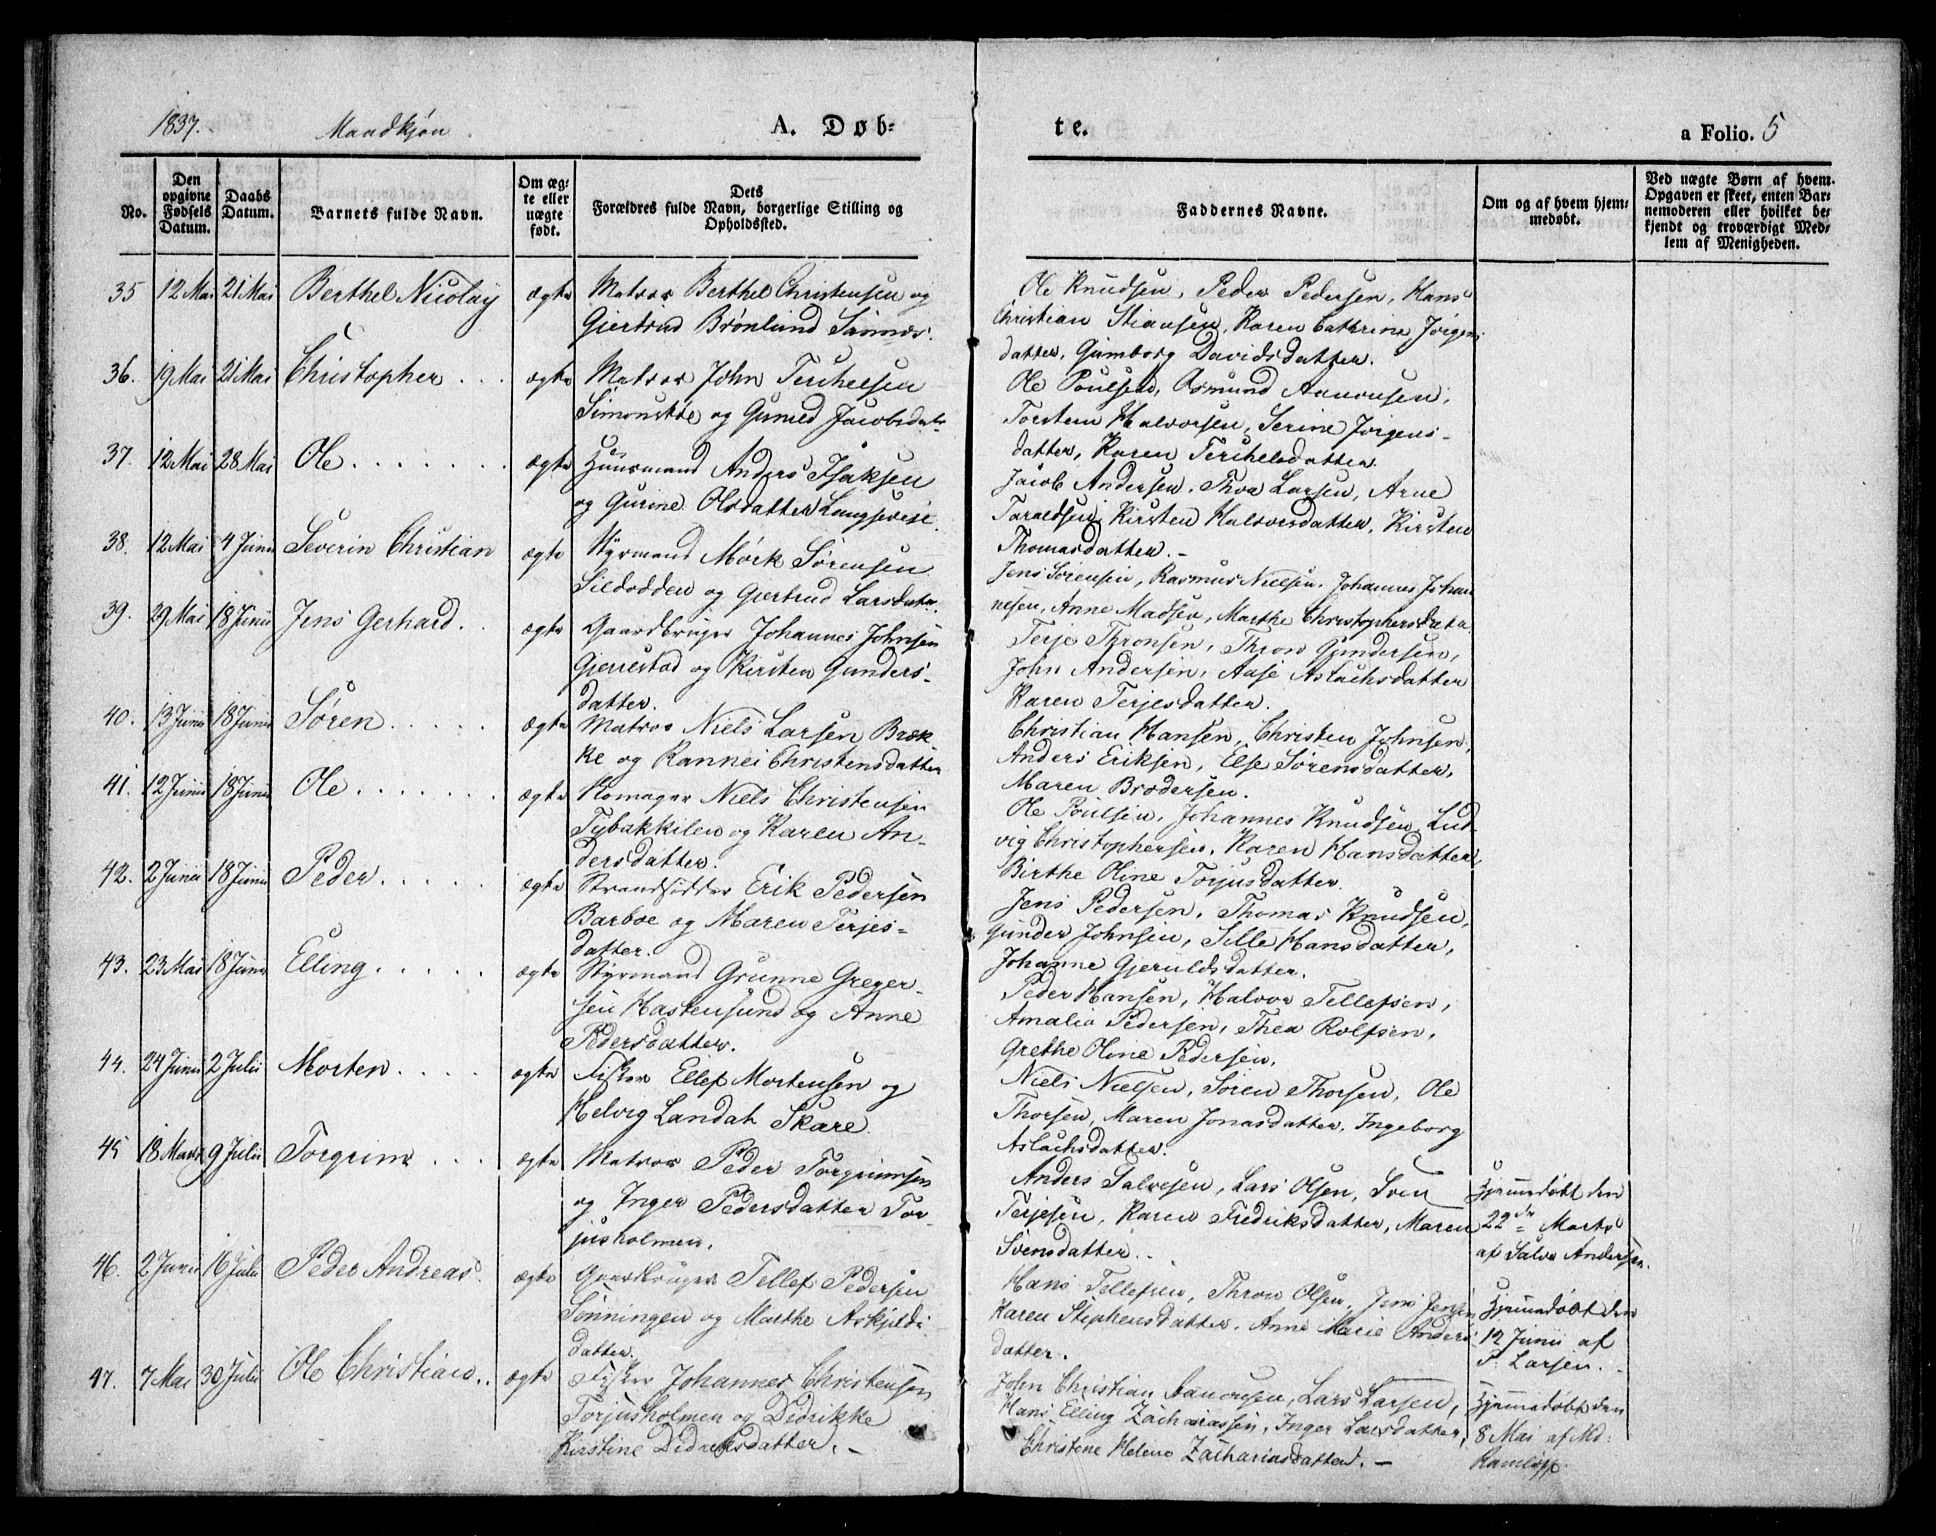 1837. Mandkjøn A. Døb-
No.
Den opgivne Fødsels Datum.
Daabs Datum.
Barnets fulde Navn.
Om ægte eller uægte født.
Dets Forældres fulde Navn, borgerlige Stilling og Opholdssted.
35 12 Mai 21 Mai Berthel Nicolay ægte Matros Berthel Christensen og
Giertrud Brønlund Sannæs.
36. 19 Mai 21 Mai Christopher . . . ægte Matros John Terchelsen
Simonstøe og Guned Jacobsdatr
37. 12 Mai 28 Mai Ole . . . . . . . ægte Huusmand Anders Isaksen
og Gurine Olsdatter Langsewise
38. 12 Mai 4 Junii Severin Christian ægte Styrmand Mørk Sørensen
Sildodden og Giertrud Larsdatr.
39. 29 Mai 18 Junii Jens Gerhard . . ægte Gaardbruger Johannes Johnsen
Gjerrestad og Kirsten Gunders-
datter.
40. 13 Junii 18 Junii Søren . . . . . ægte Matros Niels Larsen Bræk-
ke og Rannei Christensdatter
41. 12 Junii 18 Junii Ole . . . . . . . ægte Skomager Niels Christensen
Tybakkilen og Karen An-
dersdatter.
42. 2 Junii 18 Junii Peder . . . . . ægte Strandsidder Erik Pedersen
Barboe og Maren Terjes-
datter.
43. 23 Mai 18 Junii Elling . . . . . ægte Styrmand Grunne Greger-
sen Hastensund og Anne
Pedersdatter.
44. 24 Junii 2 Julii Morten . . . . ægte Fisker Ellef Mortensen og
Helvig Landah Skare
45 18 Marts 9 Julii Torgrim . . . ægte Matros Peder Torgrimsen
og Inger Pedersdatter Tor-
jusholmen.
46. 2 Junii 16 Julii Peder Andreas. ægte Gaardbruger Tellef Pedersen
Sønningen og Marthe Askjelds-
datter.
47. 7 Mai 30 Julii Ole Christian . . ægte Fisker Johannes Christensen
Torjusholmen og Didrikke
Kirstine Didriksdatter. —
te. a Folio. 5
Faddernes Navne.
Om og af hvem hjemmedøbt.
Ved uægte Børn af hvem Opgaven er skeet, enten Barnemoderen eller hvilket bekjendt og troværdigt Medlem af Menigheden.
Ole Knudsen, Peder Pedersen, Hans
Christian Stiansen, Karen Cathrine Jørgens
datter, Gunborg Davidsdatter.
Ole Poulsen, Osmund Aanonsen,
Torsten Halvorsen, Serine Jørgens-
datter, Karen Terchelsdatter
Jacob Andersen, Thor Larsen, Arne
Taraldsen, Kirsten Halvorsdatter, Kirsten
Thomasdatter. —
Jens Sørensen, Rasmus Nielsen, Johannes Johan
nesen, Anne Madsen, Marthe Christophersdatr
Terje Thronsen, Thron Gundersen,
John Andersen, Aase Aslachsdatter
Karen Terjesdatter.
Christian Hansen, Christen Johnsen,
Anders Eriksen, Else Sørensdatter,
Maren Brodersen.
Ole Poulsen, Johannes Knudsen, Lud-
vig Christophersen, Karen Hansdatter,
Birthe Oline Torjusdatter.
Jens Pedersen, Thomas Knudsen,
Gunder Johnsen, Sille Hansdatter,
Johanne Gjeruldsdatter.
Peder Hansen, Halvor Tellefsen,
Amalia Pedersen, Thea Rolfsen,
Grethe Oline Pedersen.
Niels Nielsen, Søren Thorsen, Ole
Thorsen, Maren Jonasdatter, Ingeborg
Aslachsdatter.
Anders Salvesen, Lars Olsen, Sven
Terjesen, Karen Fredriksdatter, Maren
Svensdatter. .
Hjemmedøbt den
22de Marts
af Salve Andersen.
Hans Tellefsen, Thron Olsen, Jens Jensen
Karen Stephensdatter, Anne Marie Anders
datter.
Hjemmedøbt den
12 Junii af
P. Larsen. .
John Christian Aanonsen, Lars Larsen,
Hans Elling Zachariassen, Inger Larsdatter,
Christine Helene Zachariasdatter. —
Hjemmedøbt den
8 Mai af Md:
Ramløff.